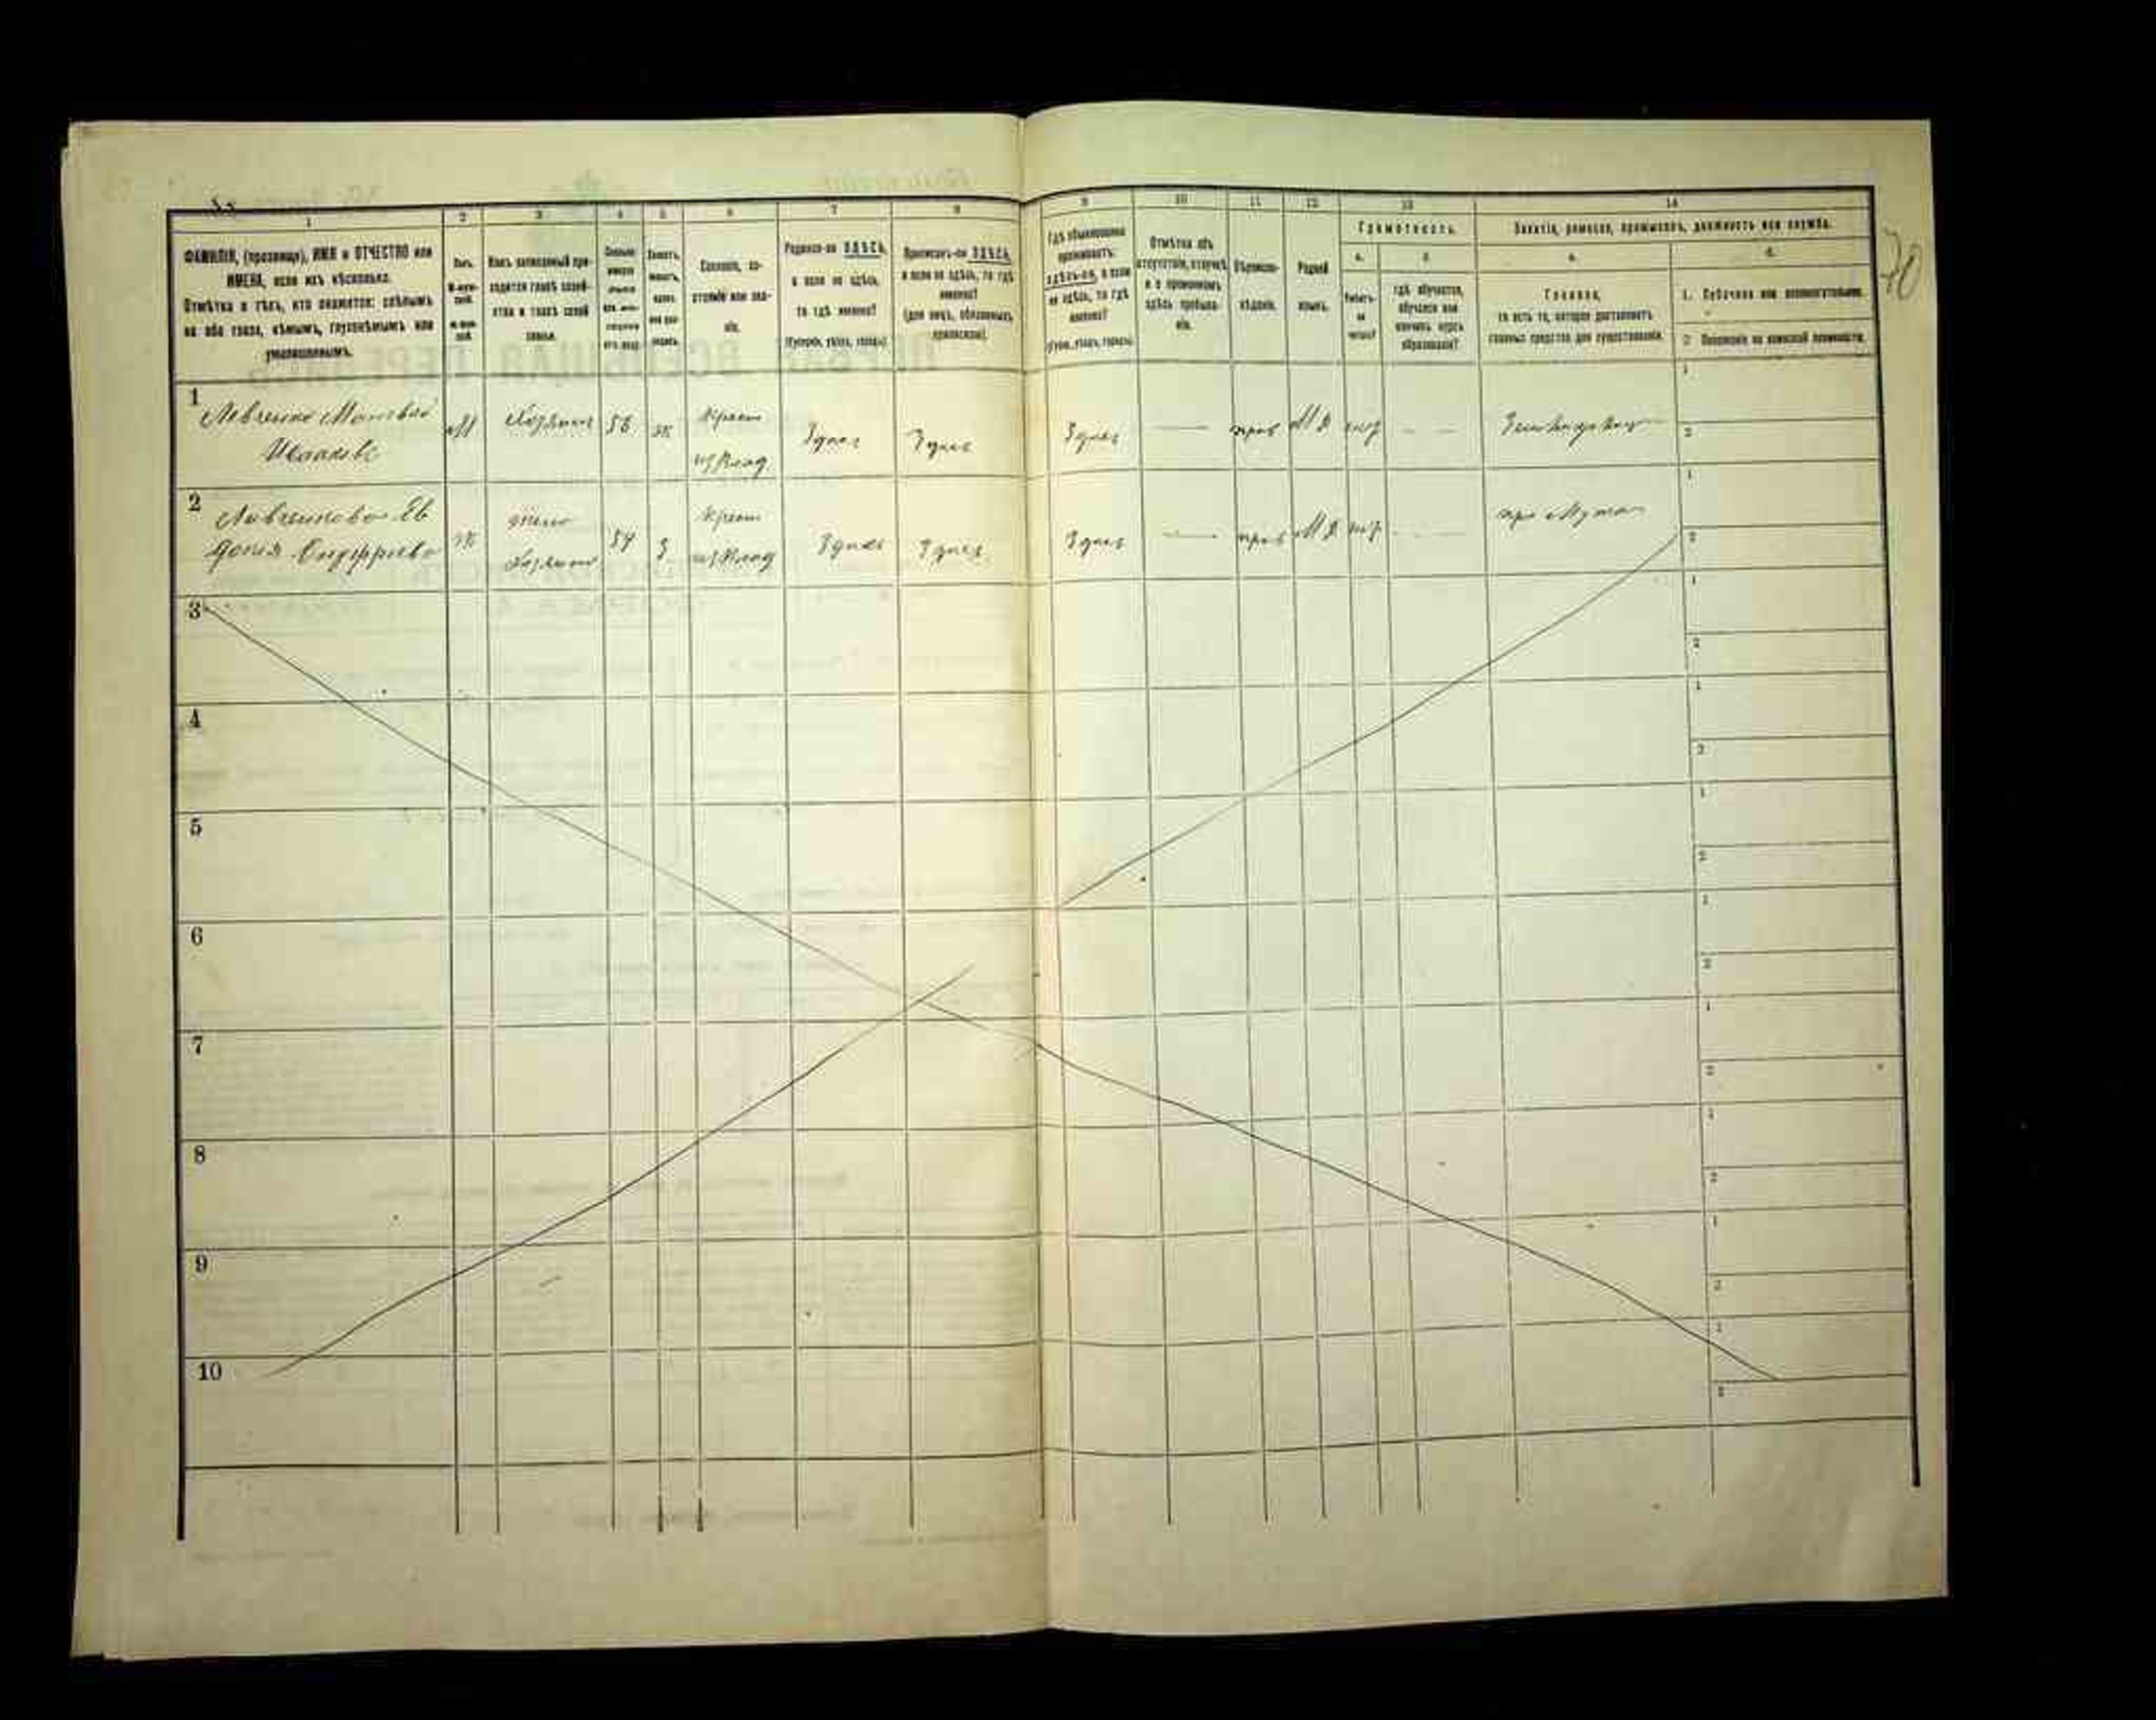 1 2 3 4 5 6 7 8 9 10 11 12 13 14
ФАМИЛІЯ, (прозвище), ИМЯ и ОТЧЕСТВО или
ИМЕНА, если ихъ нѣсколько.
Отмѣтка о тѣхъ, кто окажется: слѣпымъ
на оба глаза, нѣмымъ, глухонѣмымъ или
умалишеннымъ.
Полъ.
Какъ записанный при-
ходится главѣ хозяй-
ства и главѣ своей
семьи.
Сословіе, со-
стояніе или зва-
ніе.
Родился-ли ЗДѢСЬ,
а если не здѣсь,
то гдѣ именно?
(Губернія, уѣздъ, городъ).
Приписанъ-ли ЗДѢСЬ,
а если не здѣсь, то гдѣ
именно?
(для лицъ, обязанныхъ
припискою).
Гдѣ обыкновенно
проживаетъ:
здѣсь-ли, а если
не здѣсь, то гдѣ
именно?
(Губ., уѣздъ, городъ).
Отмѣтка объ
отсутствіи, отлучкѣ
и о временномъ
здѣсь пребыва-
ніи.
Вѣроиспо-
вѣданіе.
Родной
языкъ.
Грамотность.
а. б.
Умѣетъ-
ли
читать?
гдѣ обучается,
обучался или
кончилъ курсъ
образованія?
Занятіе, ремесло, промыселъ, должность или служба.
а. б.
Главное,
то есть то, которое доставляетъ
главныя средства для существованія.
1. Побочное или вспомогательное.
2. Положеніе по воинской повинности.
70
1
Левченко Матвѣй
Исааковъ
М
Хозяинъ
56
ж
крест
из Влад
Здесь
Здесь
Здесь
прав
М Р
Земледелец
2
Левченкова Ев
докия
ж
жена
Хозяина
54
З
крест
из Влад
Здесь
Здесь
Здесь
прав
М Р
при Муже
3
4
5
6
7
8
9
10